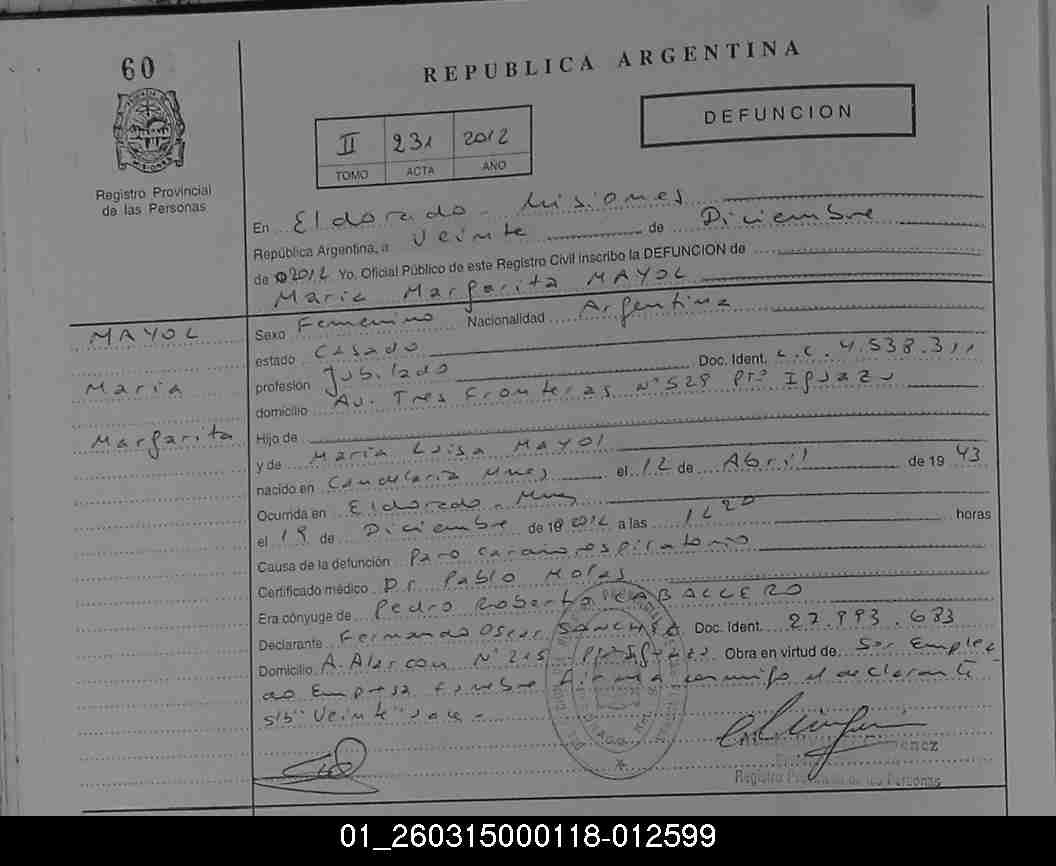 60
REPUBLICA ARGENTINA
DEFUNCION
II 231 2012
TOMO ACTA AÑO
Registro Provincial
de las Personas
En Eldorado - Misiones
República Argentina, a Veinte de Diciembre
de 2012 Yo, Oficial Público de este Registro Civil inscribo la DEFUNCION de
Maria Margarita MAYOL
MAYOL
Maria
Margarita
Sexo Femenino Nacionalidad Argentina
estado Casado
profesión Jubilado Doc. Ident. L.C. 4.538.311
domicilio Av. Tres Fronteras N° 528 Pto Iguazu
Hijo de
y de Maria Luisa MAYOL
nacido en Candelaria Mnes el 12 de Abril de 19 43
Ocurrida en Eldorado - Mnes
el 19 de Diciembre de 2012 a las horas
Causa de la defunción Paro cardiorespiratorio
Certificado médico Dr. Pablo
Era cónyuge de Pedro Roberto CABALLERO
Declarante Fernando Oscar Doc. Ident. 27.993.683
Domicilio A. Alarcon N° 215 Pto Iguazu Obra en virtud de Ser Emplea
do Empresa Funebre firma conmigo el declarante
Registro Provincial de las Personas
01_260315000118-012599